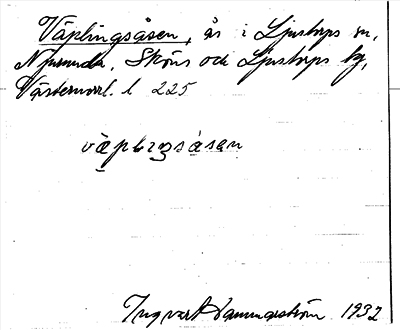 Väplingsåsen, ås i Ljustorps sn,
Njurunda, Sköns och Ljustorps tg,
Västernorrl. l 225
väplıŋsåsan
Ingvar Hammarström 1932